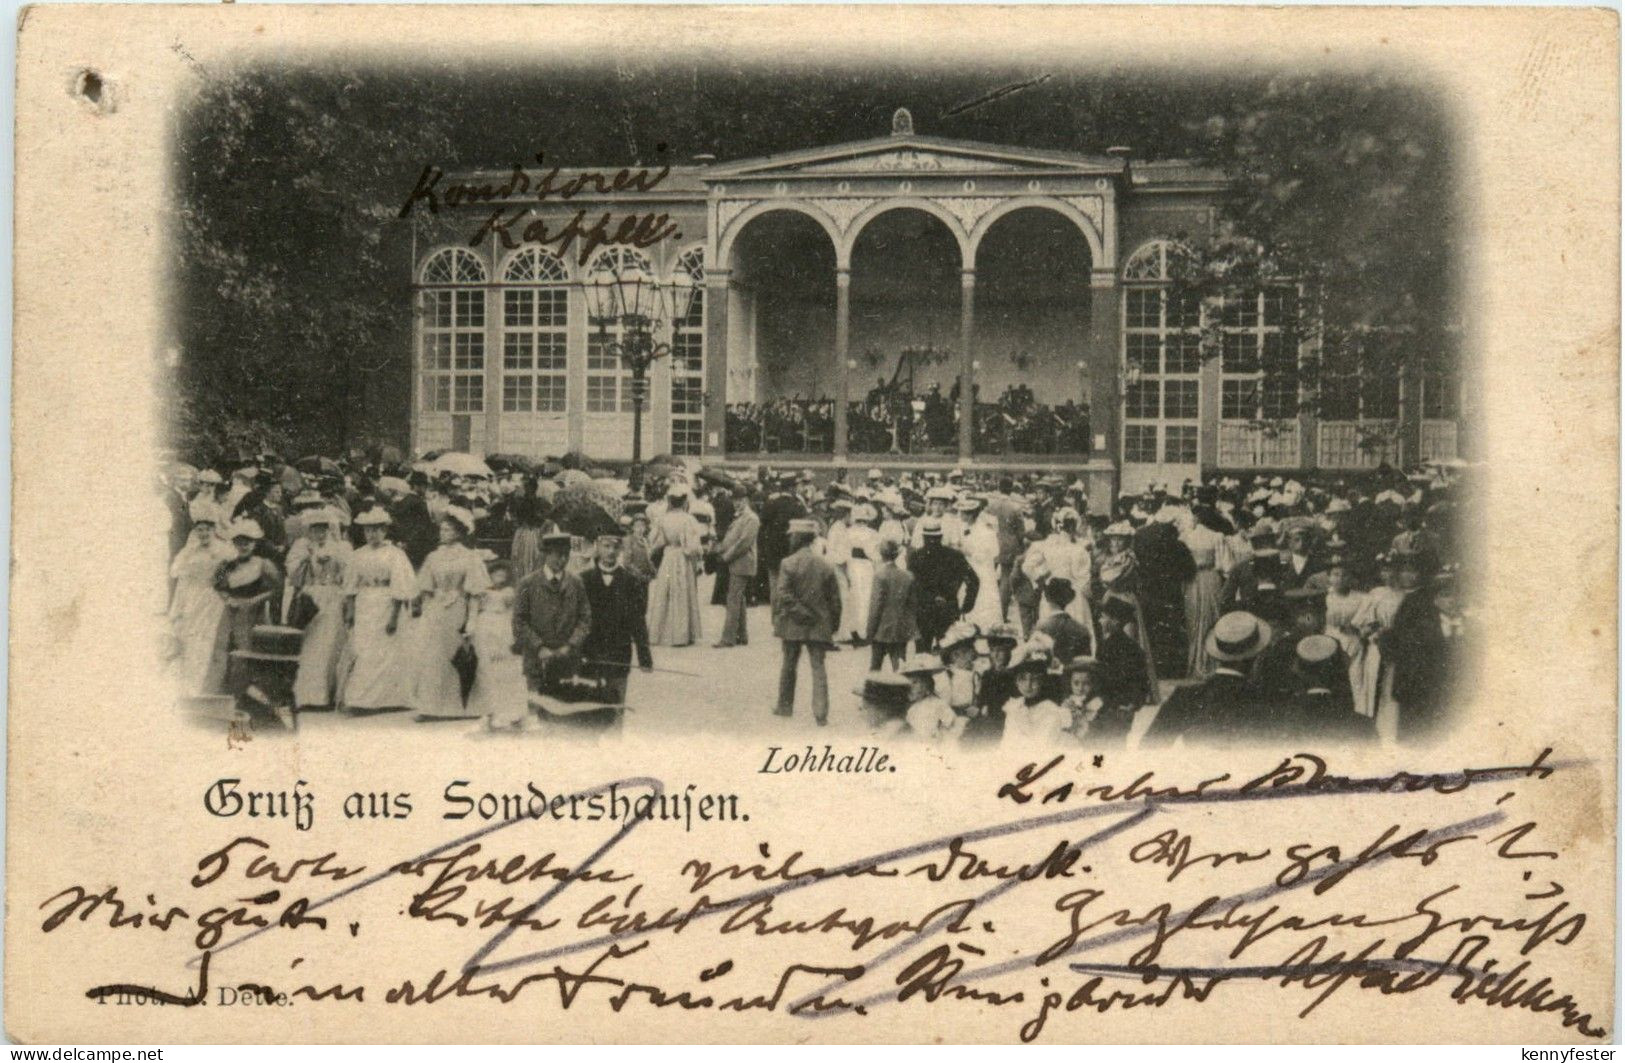 Konditorei
Kappell.
Lohhalle.
Gruß aus Sondershausen.
Lieber
Karte erhalten, vielen Dank. Wie gehts?
Mir gut. Bitte bald Antwort. Herzlichen Gruß
Dein alter Freund u. Kneipbruder Alfred
Phot. A. Dette.
delcampe.net
kennyfester